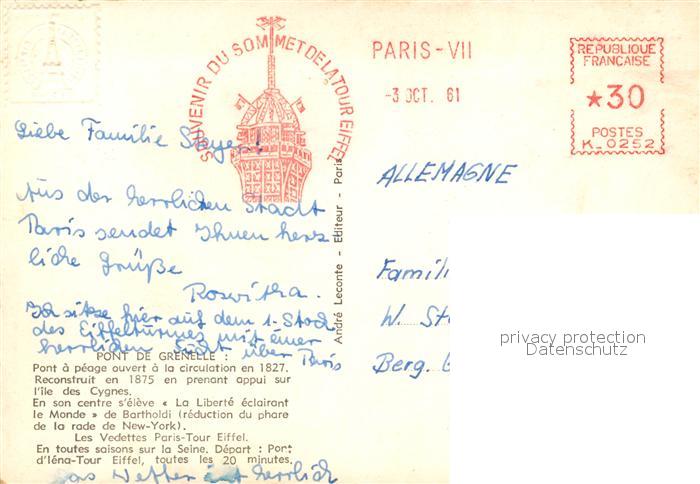 SOUVENIR DU SOMMET DE LA TOUR EIFFEL
PARIS-VII
-3 OCT. 61
REPUBLIQUE
FRANCAISE
★30
POSTES
K-0252
Liebe Familie
Aus der herrlichen Stadt
Paris sendet Ihnen herz
liche Grüße
Roswitha.
Ich sitze hier auf dem 1. Stock
des Eiffelturmes mit einer
herrlichen Sicht über Paris
PONT DE GRENELLE :
Pont à péage ouvert à la circulation en 1827.
Reconstruit en 1875 en prenant appui sur
l'île des Cygnes.
En son centre s'élève « La Liberté éclairant
le Monde » de Bartholdi (réduction du phare
de la rade de New-York).
Les Vedettes Paris-Tour Eiffel.
En toutes saisons sur la Seine. Départ : Pont
d'Iéna-Tour Eiffel, toutes les 20 minutes.
das Wetter ist herrlich
André Leconte - Editeur - Paris
ALLEMAGNE
Famili
W. St
Berg.
privacy protection
Datenschutz